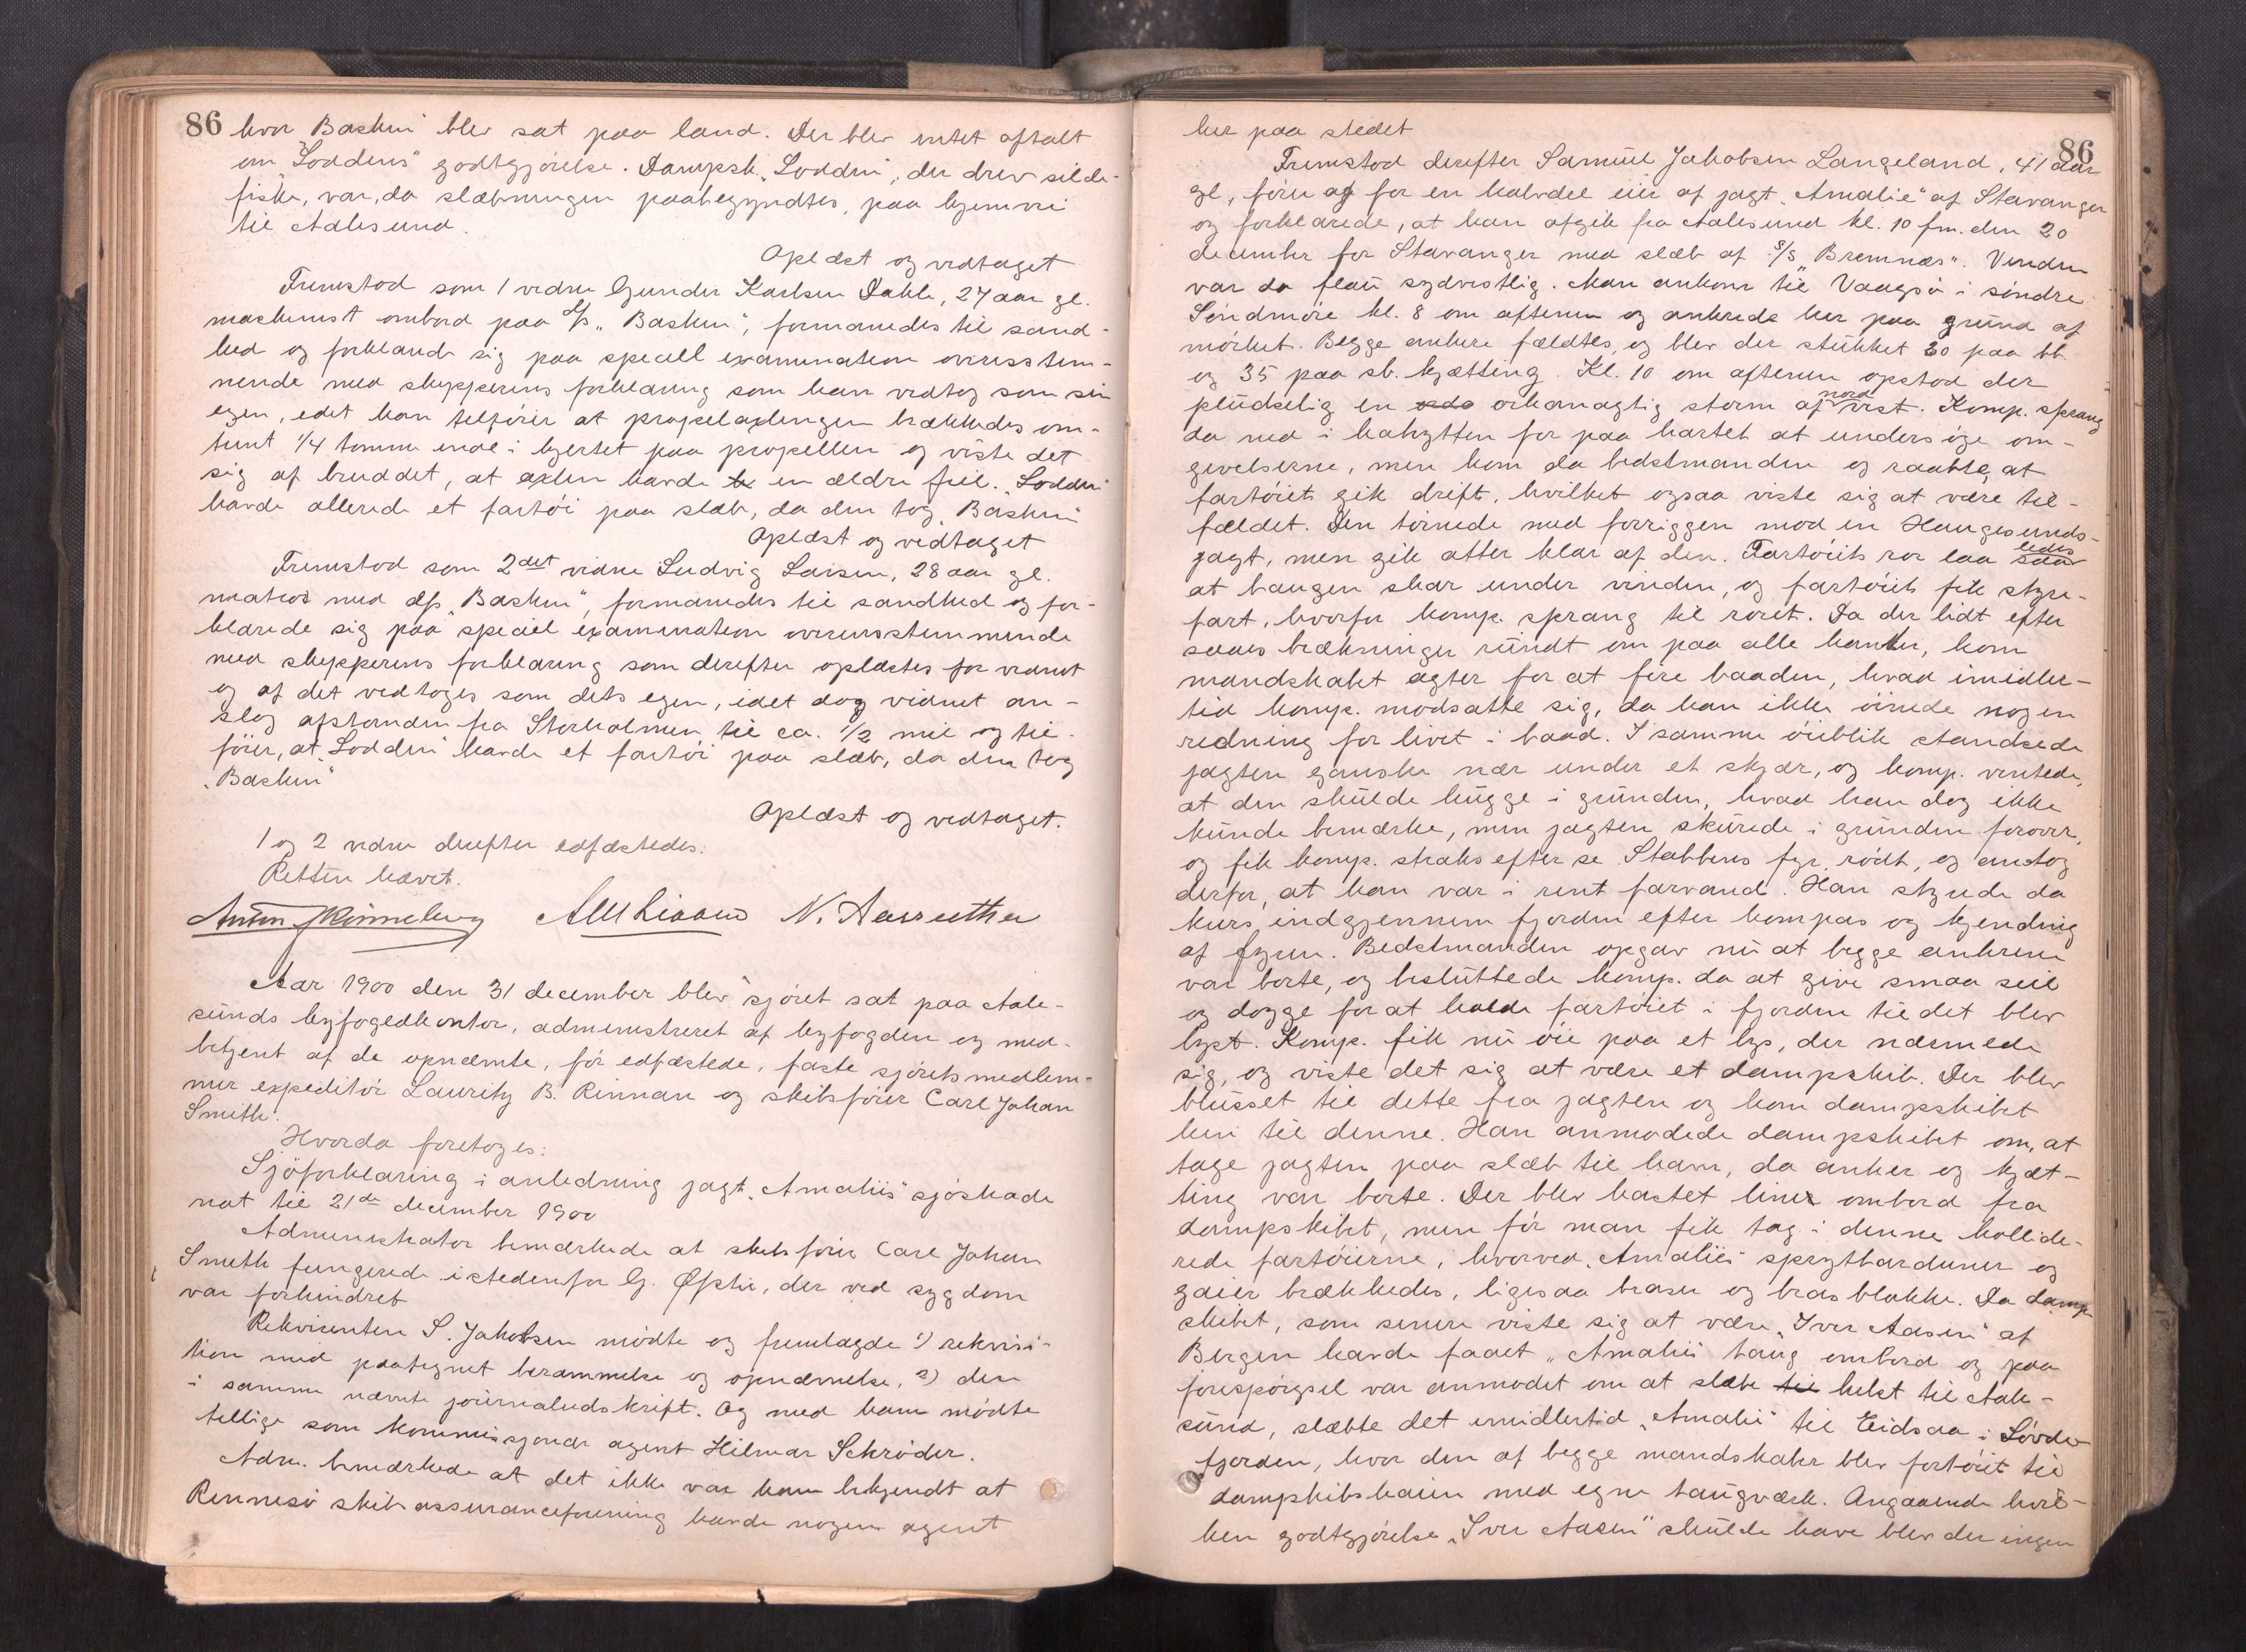 86 hvor "Baskin" blev sat paa land. Der blev intet aftalt
om "Loddens" godtgjörelse. Dampsk. "Lodden", der drev silde-
fiske, var, da slæbningen paabegyndtes, paa hjemvei
til Aalesund.
Oplæst og vedtaget
Fremstod som 1 vidne Gunder Karlsen Dahle, 27 aar gl.
maskinist ombord paa d/s "Baskin", formanedes til sand-
hed og forklarede sig paa speciell examination overensstem-
mende med skipperens forklaring som han vedtog som sin
egen, idet han tilföier at propelaxlingen brækkedes om-
trent 1/4 tomme inde i hjertet paa propellen og viste det
sig af bruddet, at axlen havde en ældre feil. "Lodden"
havde allerede et fartöi paa slæb, da den tog "Baskin"
Oplæst og vedtaget
Fremstod som 2det vidne Ludvig Larsen, 28 aar gl.
matros med d/s "Baskin", formanedes til sandhed og for-
klarede sig paa speciel examination overensstemmende
med skipperens forklaring som derefter oplæstes for vidnet
og af det vedtoges som dets egen, idet dog vidnet an-
slog afstanden fra Storholmen til ca. 1/2 mil og til-
föier, at "Lodden" havde et fartöi paa slæb, da den tog
"Baskin"
Oplæst og vedtaget.
1 og 2 vidne derefter edfæstedes.
Retten hævet.
Anton J Rönneberg N.
Aar 1900 den 31 december blev sjöret sat paa Aale-
sunds byfogedkontor, administreret af byfogden og med-
betjent af de opnævnte, för edfæstede, faste sjöretsmedlem-
mer expeditör Lauritz B. Rinnan og skibsförer Carl Johan
Smith.
Hvorda foretoges:
Sjöforklaring i anledning jagt "Amaliis" sjöskade
nat til 21de december 1900
Administrator bemærkede at skibsförer Carl Johan
Smith fungerede istedenfor G. Ofstie, der ved sygdom
var forhindret
Rekvirenten S. Jakobsen mödte og fremlagde 1) rekvisi-
tion med paategnet berammelse og opnævnelse, 2) den
i samme nævnte journaludskrift. Og med ham mödte
tillige som kommissjonær agent Hilmar Schröder.
Adm. bemærkede at det ikke var ham bekjendt at
Rennesö skibsassuranceforening havde nogen agent
her paa stedet
86
Fremstod derefter Samuel Jakobsen Langeland, 41 aar
gl, förer af for en halvdel eier af jagt "Amalie" af Stavanger
og forklarede, at han afgik fra Aalesund kl. 10 fm. den 20
december for Stavanger med slæb af S/S "Bremnæs". Vinden
var da flau sydvestlig. Man ankom til Vaagsö i söndre
Söndmöre kl. 8 om aftenen og ankrede her paa grund af
mörket. Begge ankere fældtes, og blev der stukket 30 paa bb.
og 35 paa sb. kjætting. Kl. 10 om aftenen opstod der
pludselig en orkanagtig storm af nordvest. Komp. sprang
da ned i kahytten for paa kartet at undersöge om-
givelserne, men kom da bedstmanden og raabte, at
fartöiet gik drift, hvilket ogsaa viste sig at være til-
fældet. Den törnede med forriggen mod en Haugesunds-
jagt, men gik atter klar af den. Fartöiets ror laa saaledes
at baugen skar under vinden, og fartöiet fik styre-
fart, hvorfor komp. sprang til roret. Da der lidt efter
saaes brækninger rundt om paa alle kanter, kom
mandskabet agter for at fire baaden, hvad imidler-
tid komp. modsatte sig, da han ikke öinede nogen
redning for livet i baad. I samme öieblik standsede
jagten ganske nær under et skjær, og komp. ventede,
at den skulde hugge i grunden, hvad han dog ikke
kunde bemærke, men jagten skurede i grunden forover,
og fik komp. straks efter se Stabbens fyr, rödt, og antog
derfor, at han var i rent farvand. Han styrede da
kurs indgjennem fjorden efter kompas og kjending
af fyren. Bedstmanden opgav nu at begge ankrene
var borte, og besluttede komp. da at give smaa seil
og dogge for at holde fartöiet i fjorden til det blev
lyst. Komp. fik nu öie paa et lys, der nærmede
sig, og viste det sig at være et dampskib. Der blev
blusset til dette fra jagten og kom dampskibet
hen til denne. Han anmodede dampskibet om, at
tage jagten paa slæb til havn, da anker og kjæt-
ting var borte. Der blev kastet line ombord fra
dampskibet, men för man fik tag i denne kollide-
rede fartöierne, hvorved "Amaliis" sprytbarduner og
gaier brækkedes, ligesaa braser og brasblokke. Da damp-
skibet, som senere viste sig at være "Iver Aasen" af
Bergen havde faaet "Amaliis" taug ombord og paa
forespörgsel var anmodet om at slæbe til helst til Aale-
sund, slæbte det imidlertid "Amalii" til Eidsaa i Sövde-
fjorden, hvor den af begge mandskaber blev fortöiet til
dampskibskaien med egne taugværk. Angaaende hvil-
ken godtgjörelse "Iver Aasen" skulde have blev der ingen